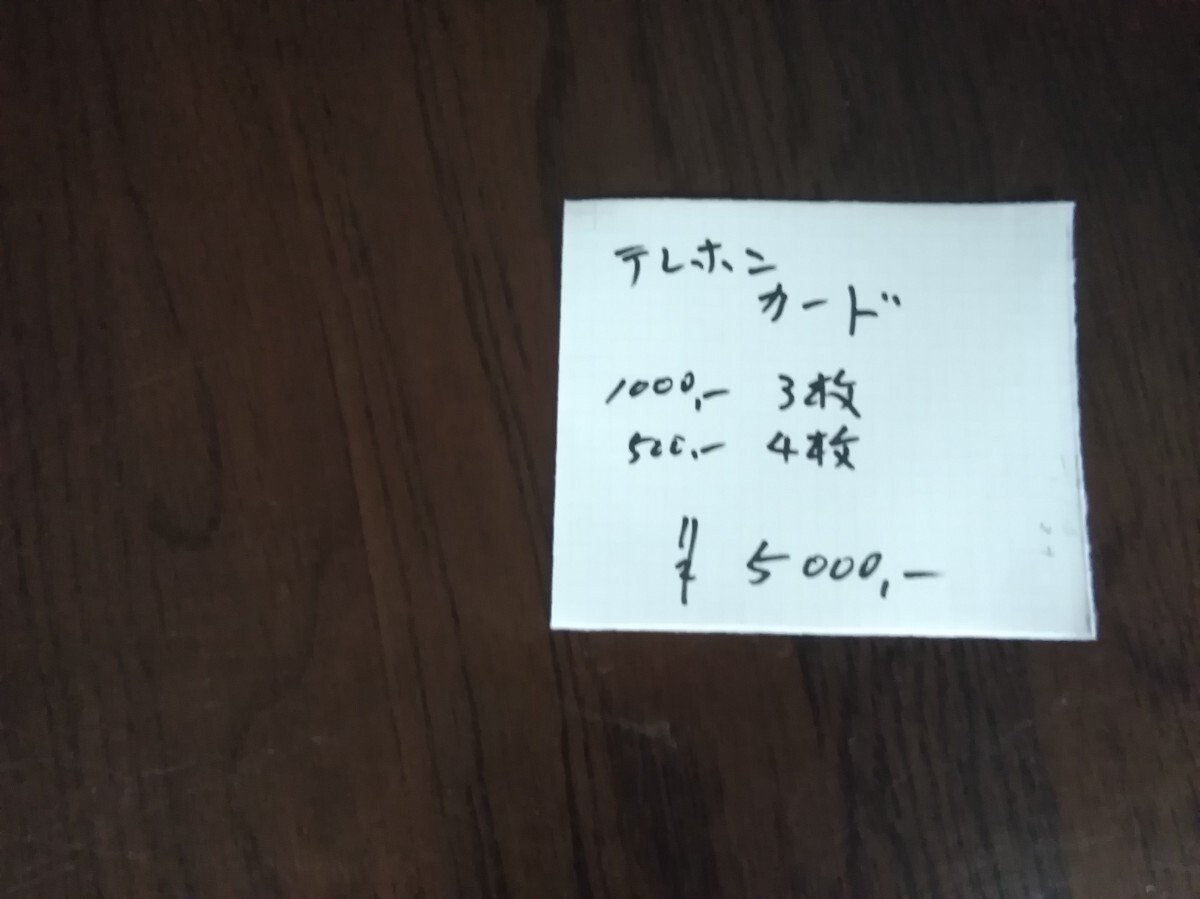 テレホン
カード
1000,- 3枚
500,- 4枚
¥ 5000,-